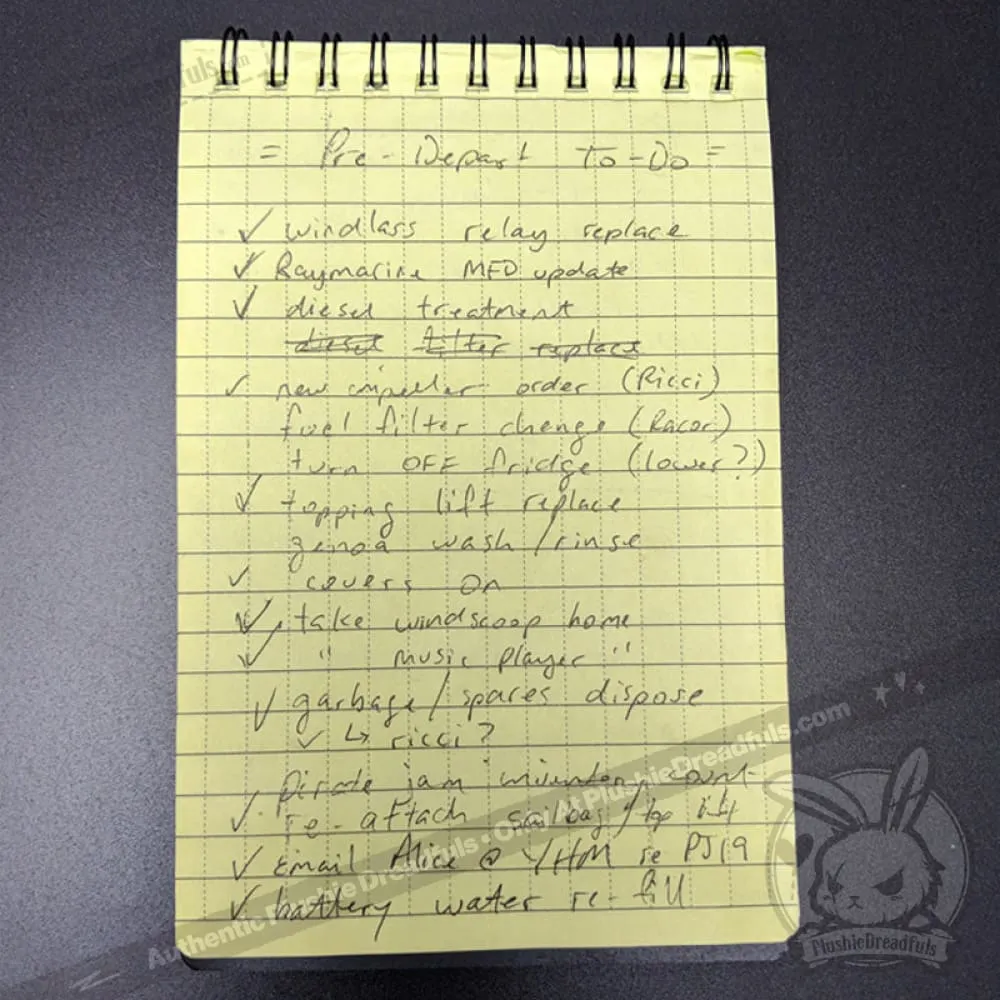 = Pre-Depart To-Do =
✓ windlass relay replace
✓ Raymarine MFD update
✓ diesel treatment
diesel filter replace
✓ new impeller order (Ricci)
fuel filter change (Racor)
turn OFF fridge (lower?)
✓ topping lift replace
genoa wash/rinse
✓ covers on
✓ take windscoop home
✓ " music player "
✓ garbage/spares dispose
✓ ↳ ricci?
Pirate jam inventory count
✓ re-attach sailbag/top lift
✓ Email Alice @ YHM re PJ19
✓ battery water re-fill
Authentic Plushie Dreadfuls : Only At PlushieDreadfuls.com
PlushieDreadfuls